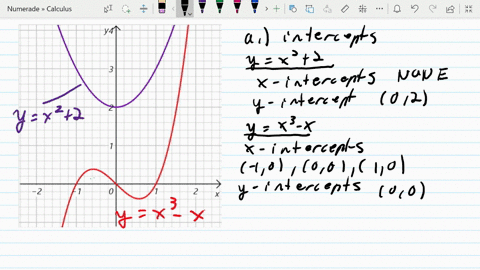 Numerade + Calculus
y
4
3
2
1
-2
-1
0
1
2
x
y = x²+2
y = x³ - x
a.) intercepts
y = x²+2
x - intercepts NONE
y - intercept (0,2)
y = x³-x
x - intercepts
(-1,0), (0,0), (1,0)
y - intercepts (0,0)